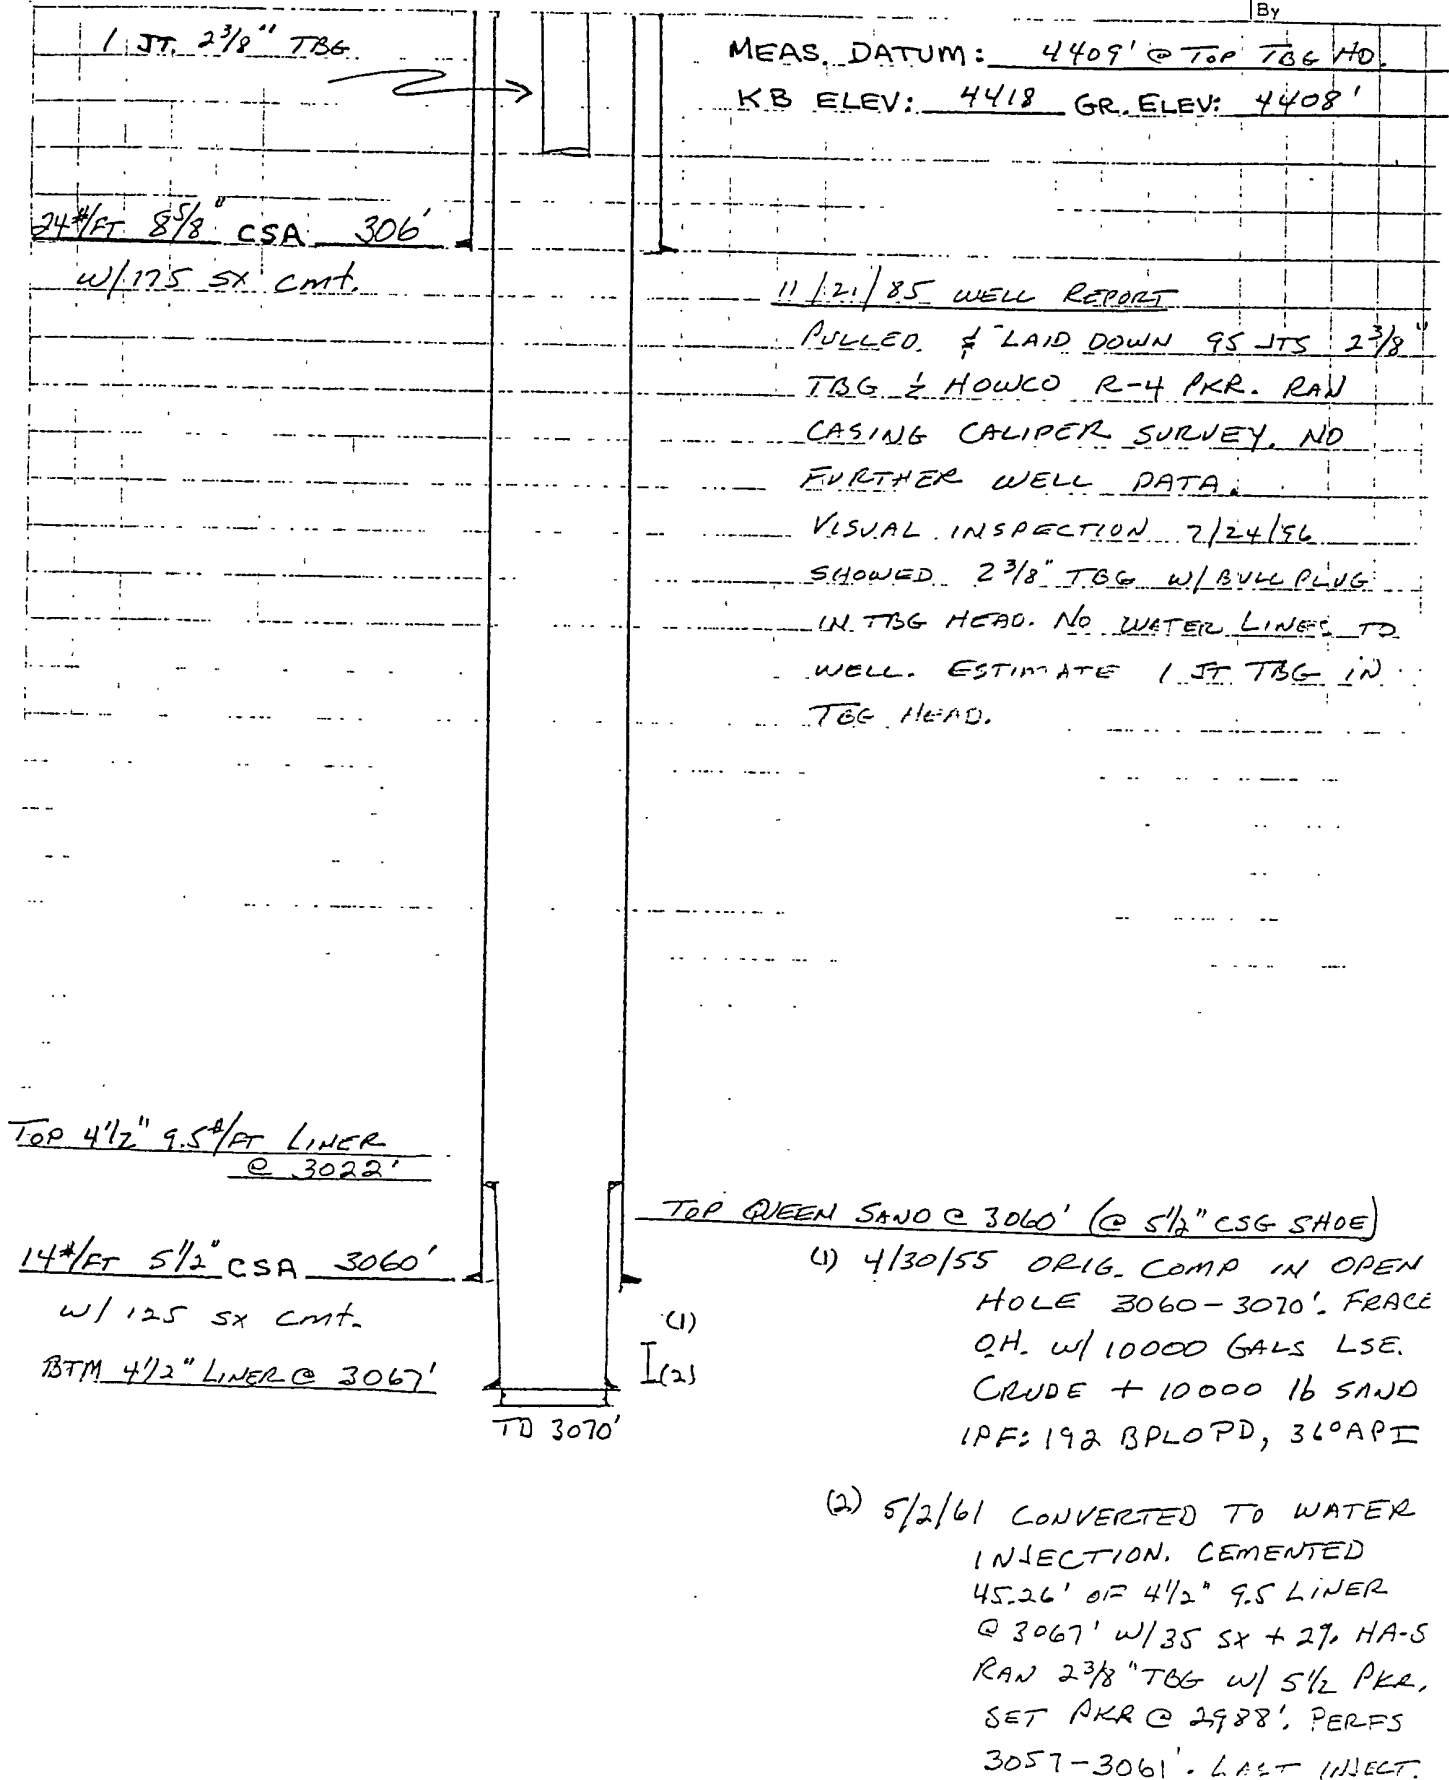 By
1 JT. 2 3/8" TBG
MEAS. DATUM: 4409' @ TOP TBG HD.
KB ELEV: 4418 GR. ELEV: 4408'
24#/FT 8 5/8" CSA 306'
W/175 SX Cmt.
11/21/85 WELL REPORT
PULLED & LAID DOWN 95 JTS 2 3/8"
TBG & HOWCO R-4 PKR. RAN
CASING CALIPER SURVEY. NO
FURTHER WELL DATA.
VISUAL INSPECTION 7/24/96
SHOWED 2 3/8" TBG W/ BULL PLUG
IN TBG HEAD. NO WATER LINES TO
WELL. ESTIMATE 1 JT TBG IN
TBG HEAD.
TOP 4 1/2" 9.5#/FT LINER
@ 3022'
TOP QUEEN SAND @ 3060' (@ 5 1/2" CSG SHOE)
14#/FT 5 1/2" CSA 3060'
W/ 125 SX Cmt.
BTM 4 1/2" LINER @ 3067'
(1)
(2)
TD 3070'
(1) 4/30/55 ORIG. COMP IN OPEN
HOLE 3060-3070'. FRACE
O.H. W/ 10000 GALS LSE.
CRUDE + 10000 lb SAND
IPF: 192 BPLOPD, 36° API
(2) 5/2/61 CONVERTED TO WATER
INJECTION. CEMENTED
45.26' OF 4 1/2" 9.5 LINER
@ 3067' W/35 SX + 2% HA-5
RAN 2 3/8" TBG W/ 5 1/2 PKR.
SET PKR @ 2988'. PERFS
3057-3061'. LAST INJECT.